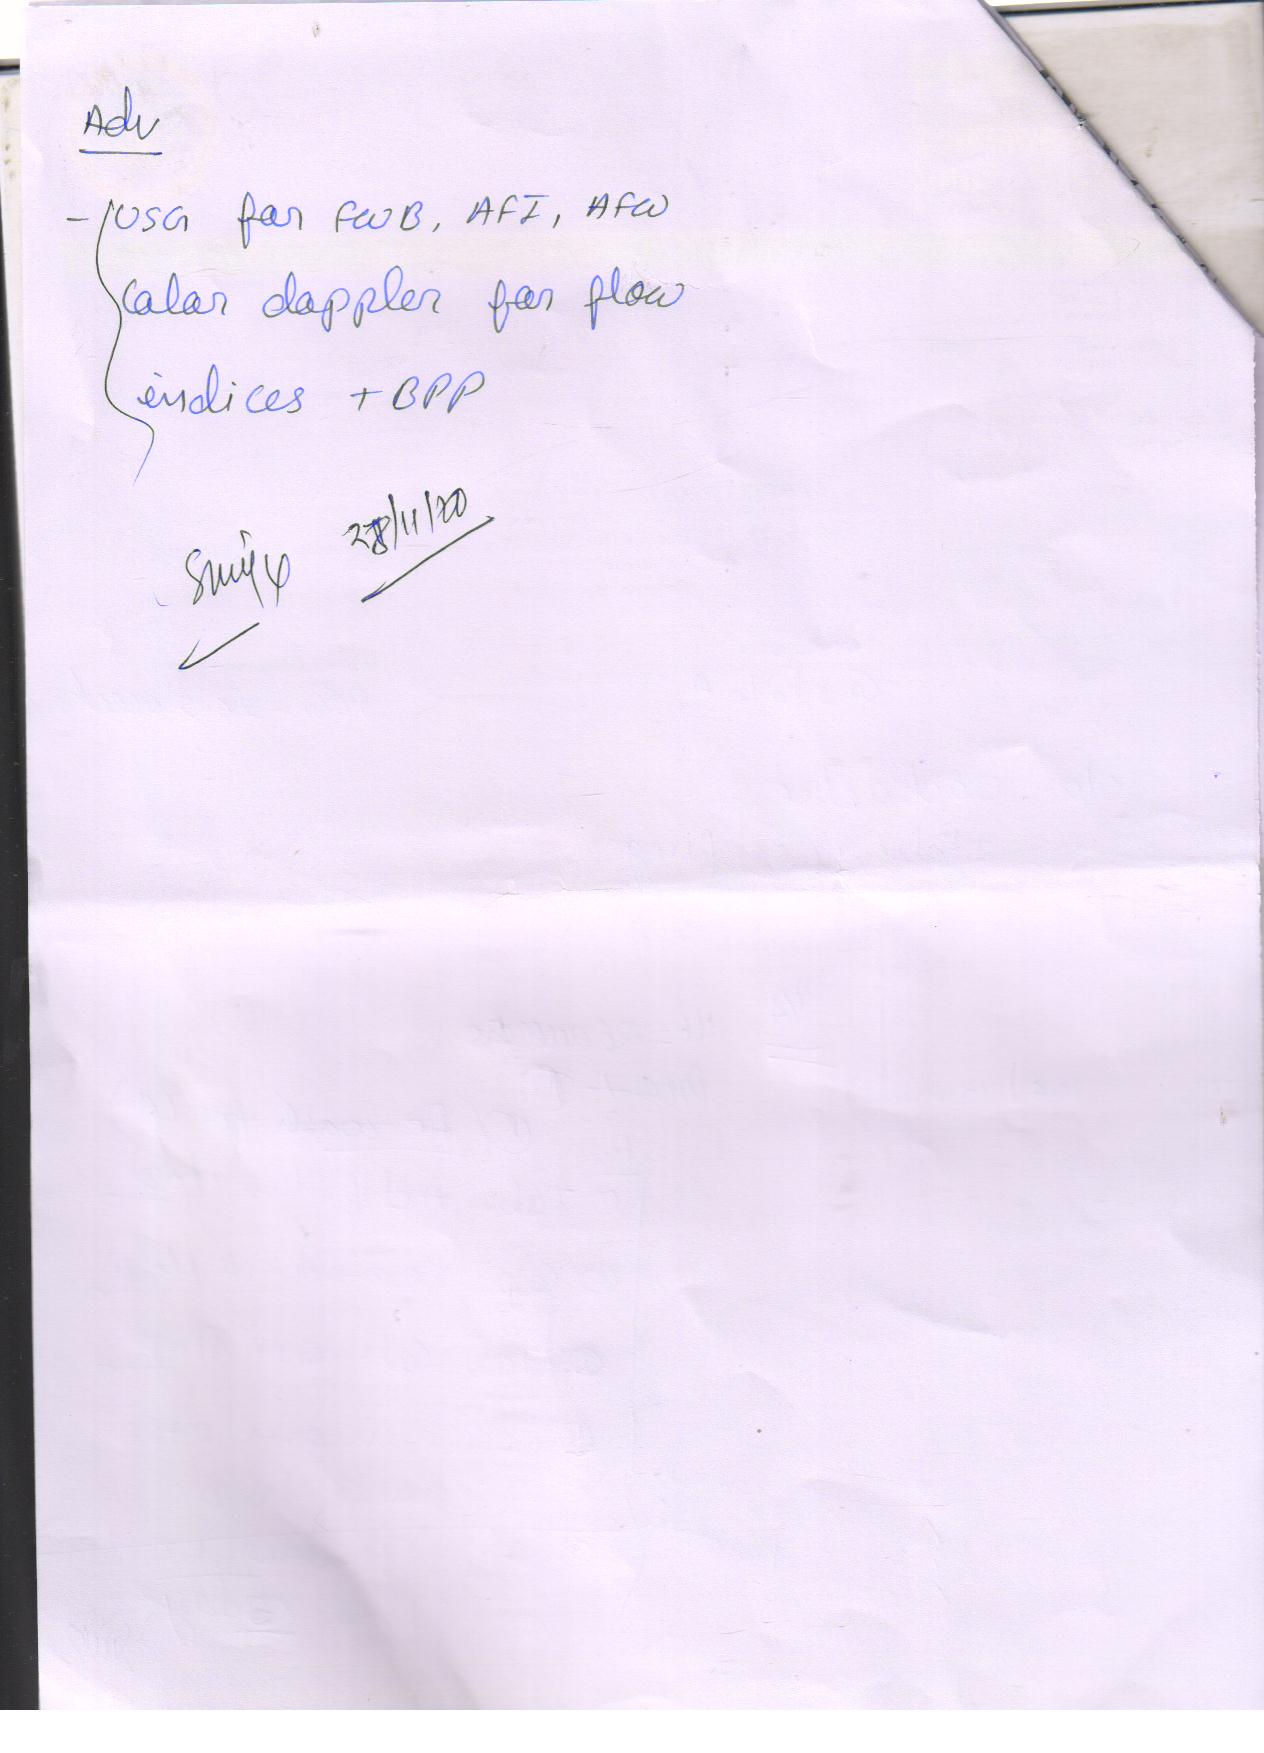 Adv
- USG for FWB, AFI, AFW
color doppler for flow
indices + BPP
28/11/20